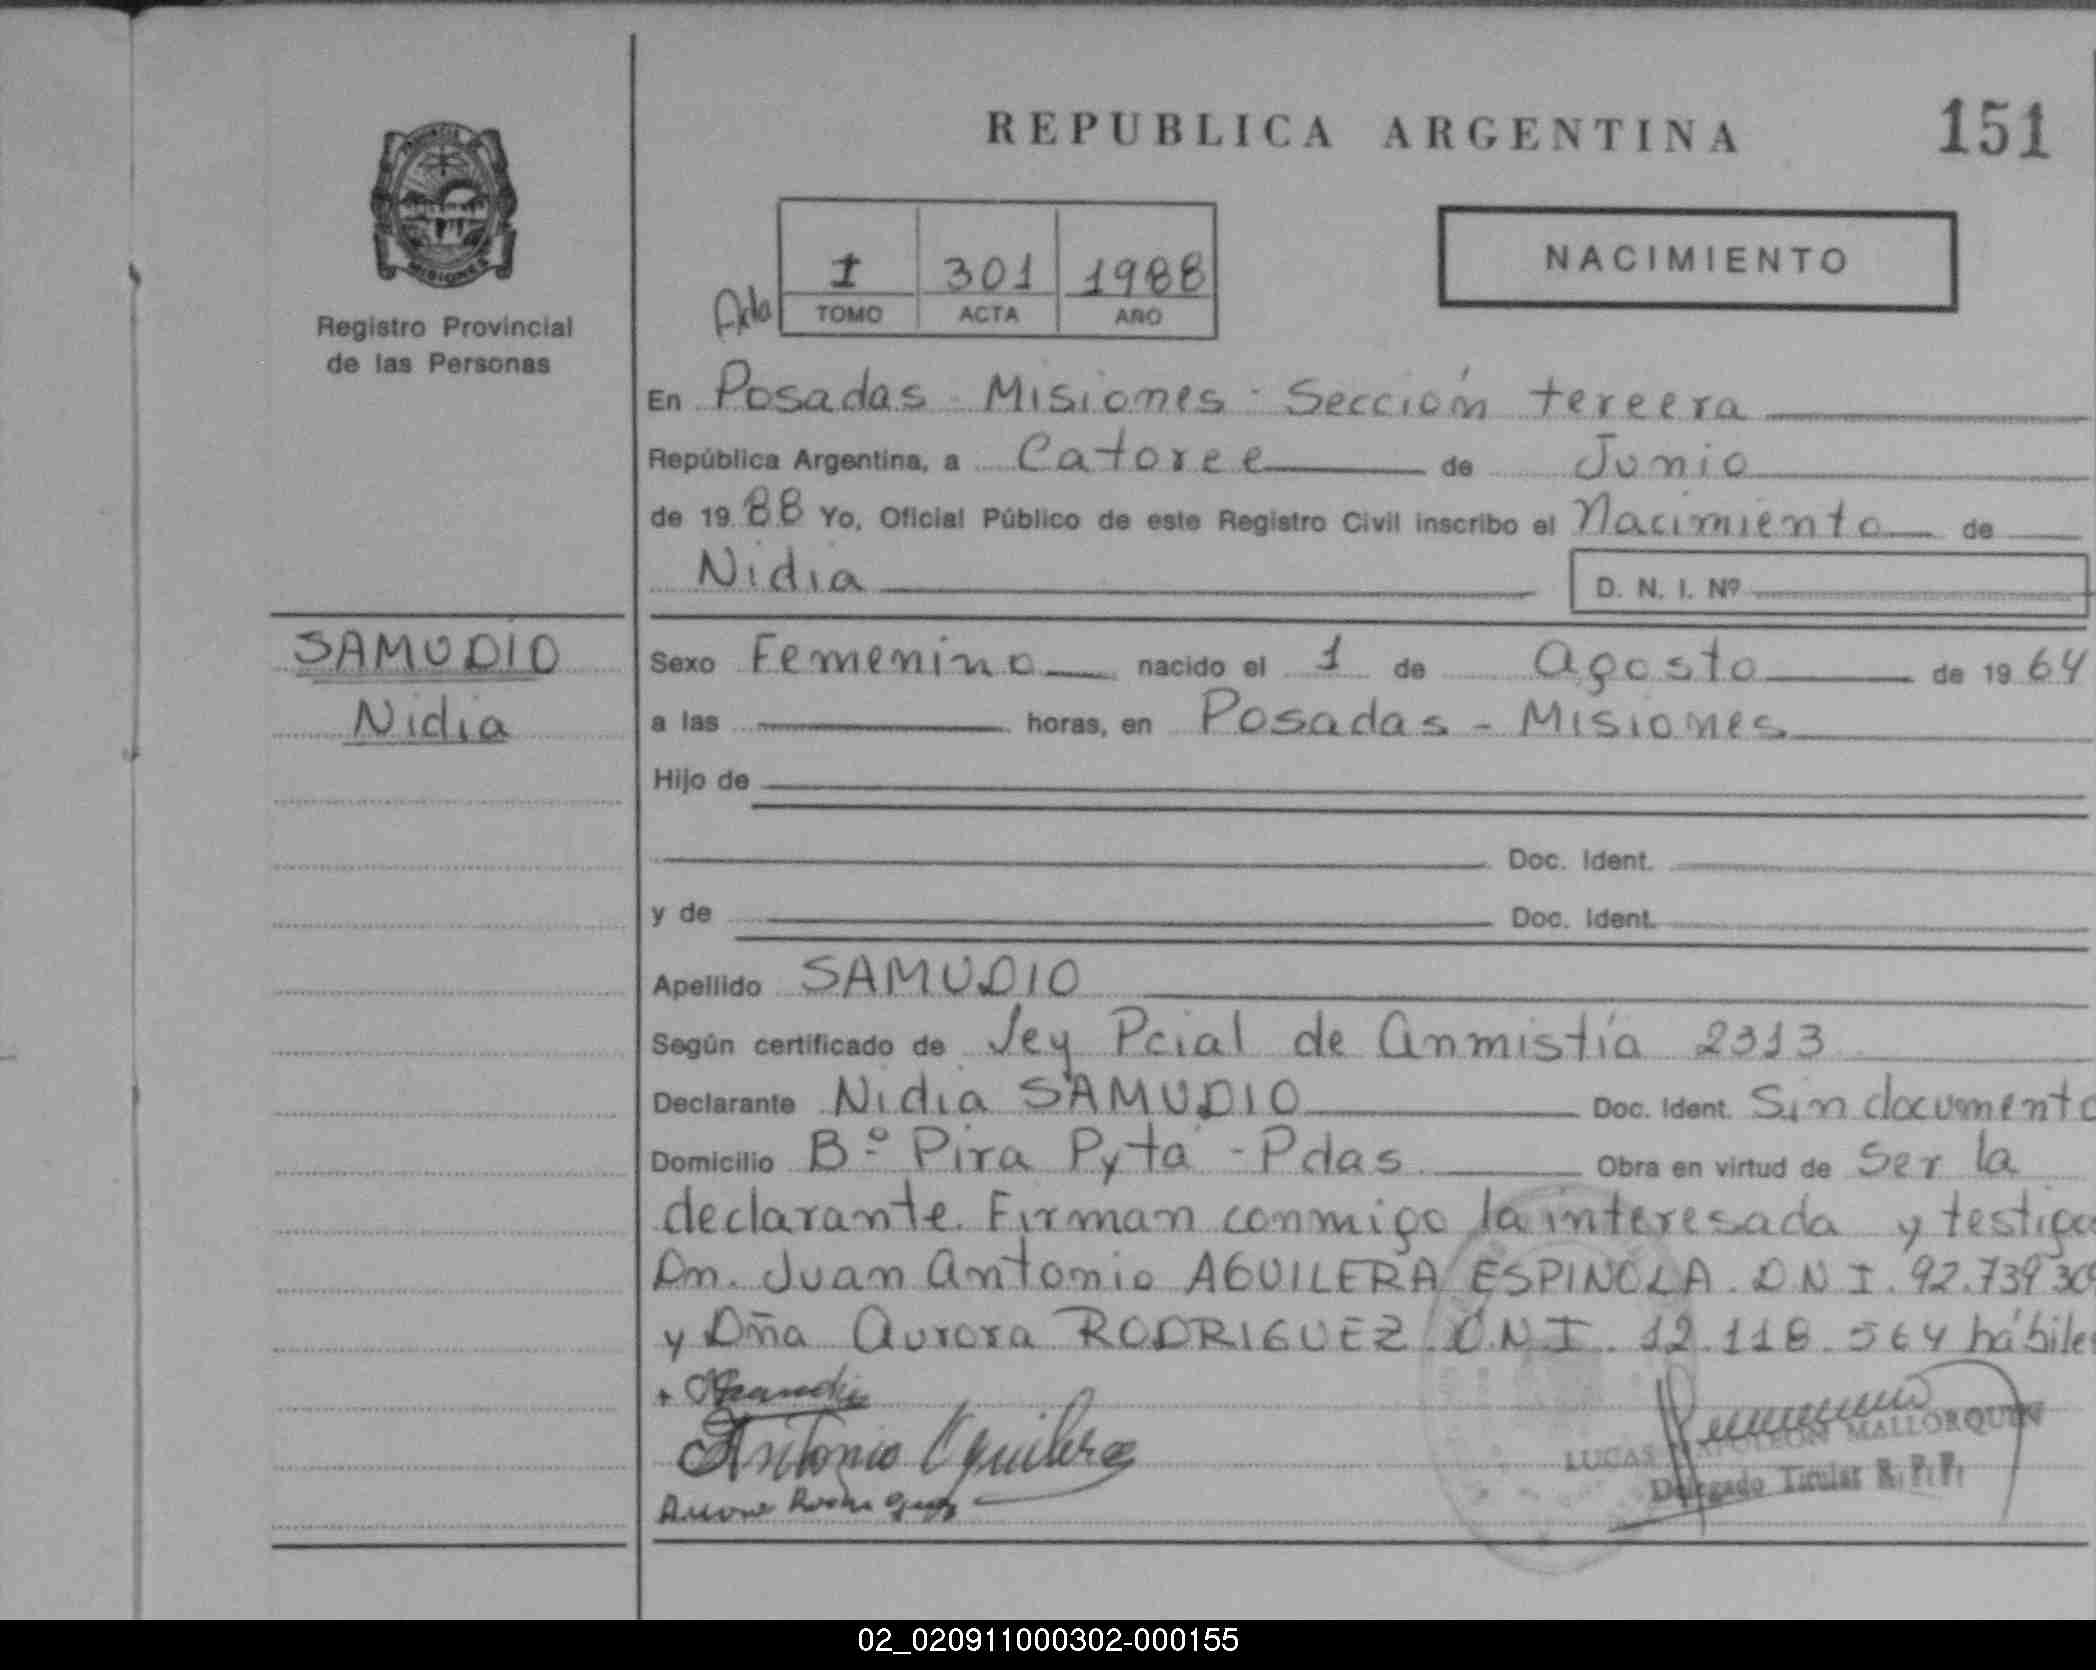 REPUBLICA ARGENTINA
151
PROVINCIA
MISIONES
Registro Provincial
de las Personas
I 301 1988
TOMO ACTA AÑO
NACIMIENTO
En Posadas - Misiones - Sección tercera
República Argentina, a Catorce de Junio
de 1988 Yo, Oficial Público de este Registro Civil inscribo el Nacimiento de
Nidia D. N. I. Nº
SAMUDIO
Nidia
Sexo Femenino nacido el 1 de Agosto de 1964
a las horas, en Posadas - Misiones
Hijo de
Doc. Ident.
y de Doc. Ident.
Apellido SAMUDIO
Según certificado de Ley Pcial de Anmistía 2313
Declarante Nidia SAMUDIO Doc. Ident. Sin documento
Domicilio Bº Pira Pyta - Pdas Obra en virtud de Ser la
declarante. Firman conmigo la interesada y testigo
Dn. Juan Antonio AGUILERA ESPINOLA. D N I. 92.739 30
y Dña Aurora RODRIGUEZ D.N I. 12.118.564 hábile
Antonio Aguilera
LUCAS NAPOLEON MALLORQUIN
Delegado Titular R.P.P.
02_020911000302-000155